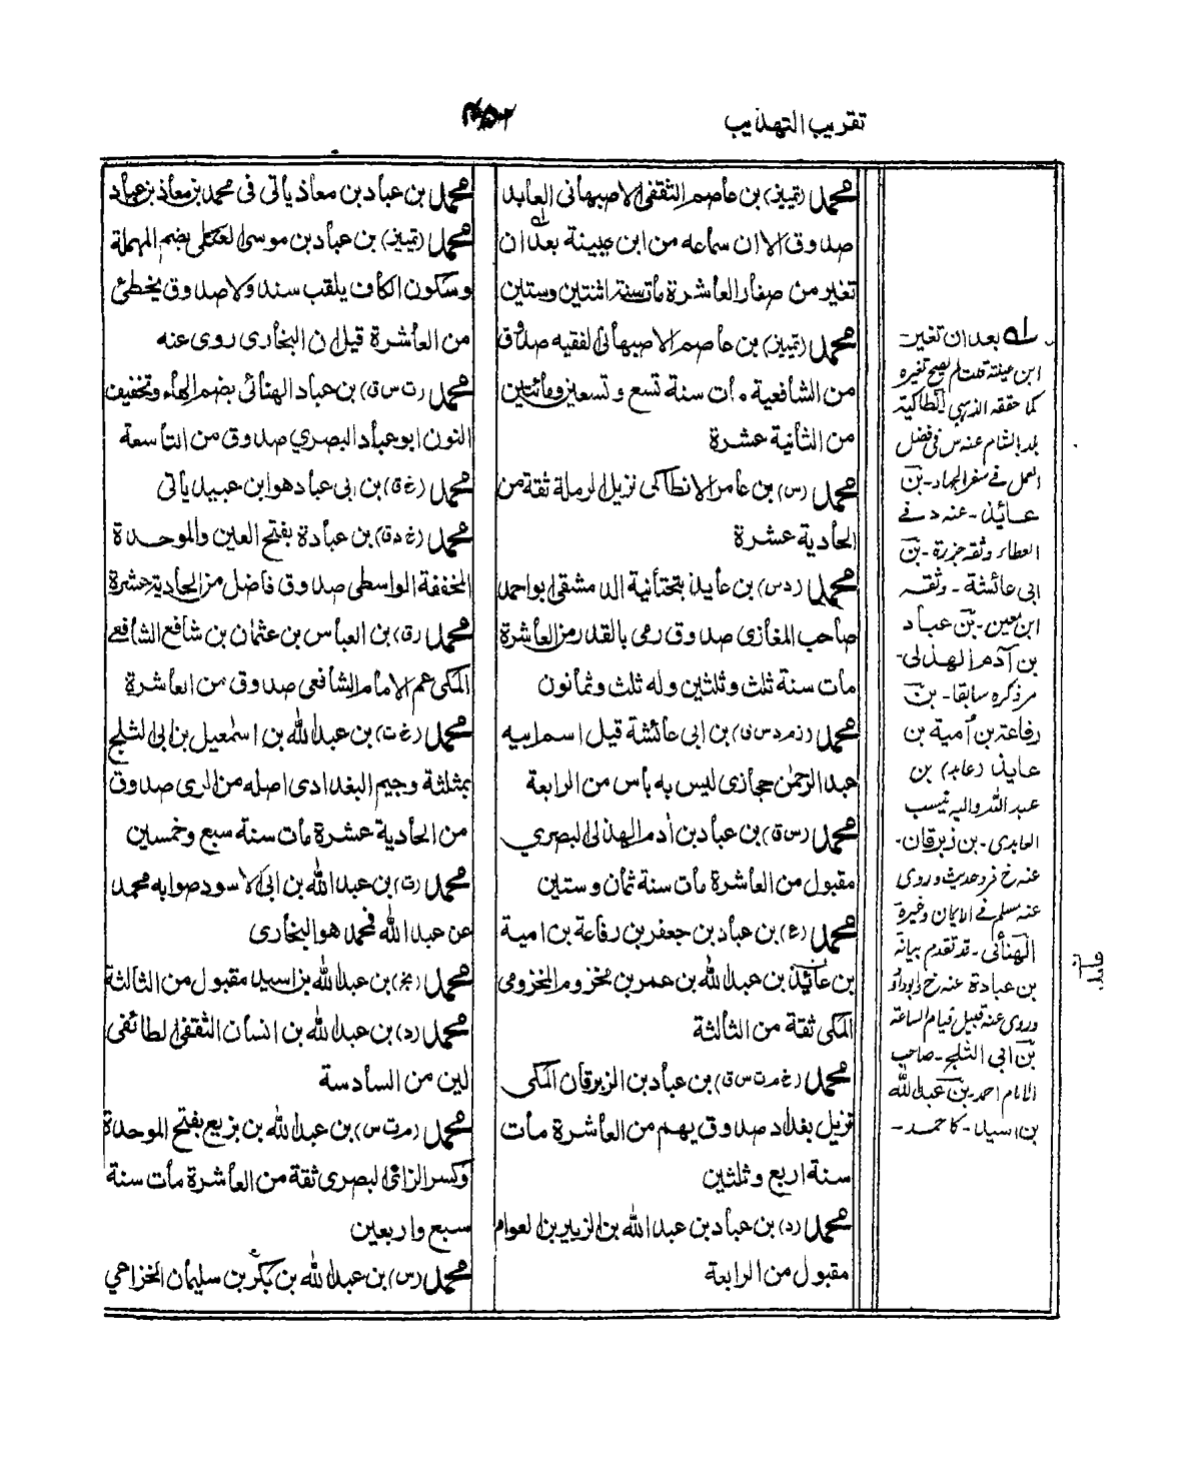 تقريب التهذيب
محمد (تمييز) بن عاصم الثقفى الاصبهانى العابد
صدوق الا ان سماعه من ابن عيينة بعد ان
تغير من صغار العاشرة مات سنة اثنتين وستين
محمد (تمييز) بن عاصم الاصبهانى الفقيه صدوق
من الشافعية مات سنة تسع وتسعين ومائتين
من الثانية عشرة
محمد (س) بن عامر الانطاكى نزيل الرملة ثقة من
الحادية عشرة
محمد (د س) بن عايذ بتحتانية الدمشقى ابو احمد
صاحب المغازى صدوق رمى بالقدر من العاشرة
مات سنة ثلث وثلثين وله ثلث وثمانون
محمد (ز م د س ق) بن ابى عائشة قيل اسم ابيه
عبد الرحمٰن حجازى ليس به باس من الرابعة
محمد (س ق) بن عباد بن اٰدم الهذلى البصري
مقبول من العاشرة مات سنة ثمان وستين
محمد (ع) بن عباد بن جعفر بن رفاعة بن امية
بن عائذ بن عبد الله بن عمر بن مخزوم المخزومى
المكى ثقة من الثالثة
محمد (خ م ت س ق) بن عباد بن الزبرقان المكى
نزيل بغداد صدوق يهم من العاشرة مات
سنة اربع وثلثين
محمد (د) بن عباد بن عبد الله بن الزبير بن العوام
مقبول من الرابعة
محمد بن عباد بن معاذ ياتى فى محمد بن معاذ بن عباد
محمد (تمييز) بن عباد بن موسى العكلى بضم المهملة
وسكون الكاف يلقب سندولا صدوق يخطئ
من العاشرة قيل ان البخارى روى عنه
محمد (ت س ق) بن عباد الهنائى بضم الهاء وتخفيف
النون ابو عباد البصري صدوق من التاسعة
محمد (خ ق) بن ابى عباد هو ابن عبيد ياتى
محمد (خ د ق) بن عبادة بفتح العين والموحدة
المخففة الواسطى صدوق فاضل من الحادية عشرة
محمد (ق) بن العباس بن عثمان بن شافع الشافعى
المكى عم الامام الشافعى صدوق من العاشرة
محمد (خ ت) بن عبد الله بن اسمٰعيل بن ابى الثلج
بمثلثة وجيم البغدادى اصله من الرى صدوق
من الحادية عشرة مات سنة سبع وخمسين
محمد (ت) بن عبد الله بن ابى الاسود صوابه محمد
عن عبد الله فمحمد هو البخارى
محمد (بخ) بن عبد الله بن اسيد مقبول من الثالثة
محمد (د) بن عبد الله بن انسان الثقفى الطائفى
لين من السادسة
محمد (م ت س) بن عبد الله بن بزيع بفتح الموحدة
وكسر الزاى البصرى ثقة من العاشرة مات سنة
سبع واربعين
محمد (س) بن عبد الله بن بكر بن سليمان الخزاعي
له بعد ان تغير۔
ابن عيينة قلت لم يصح تغيره
كما حققه الذهبى انطاكية
بلد بالشام عنه س فى فضل
العمل فى سفر الجهاد۔ بن
عائذ۔ عنه د فے
العطاء وثقه جزرة۔ بن
ابى عائشة۔ وثقه
ابن معين۔ بن عباد
بن آدم الهذلى۔
مر ذكره سابقا۔ بن
رفاعة بن اُمية بن
عايذ (عابد) بن
عبد الله واليه نيسب
العابدى۔ بن زبرقان۔
عنه خ فرد حديث وروى
عنه مسلم فے الايمان وغيره
الهنائى۔ قد تقدم بيانه
بن عبادة عنه خ ابو داؤد
وروى عنه قبيل قيام الساعة
بن ابى الثلج۔ صاحب
الامام احمد۔ بن عبد الله
بن اسيد۔ كاحمد۔